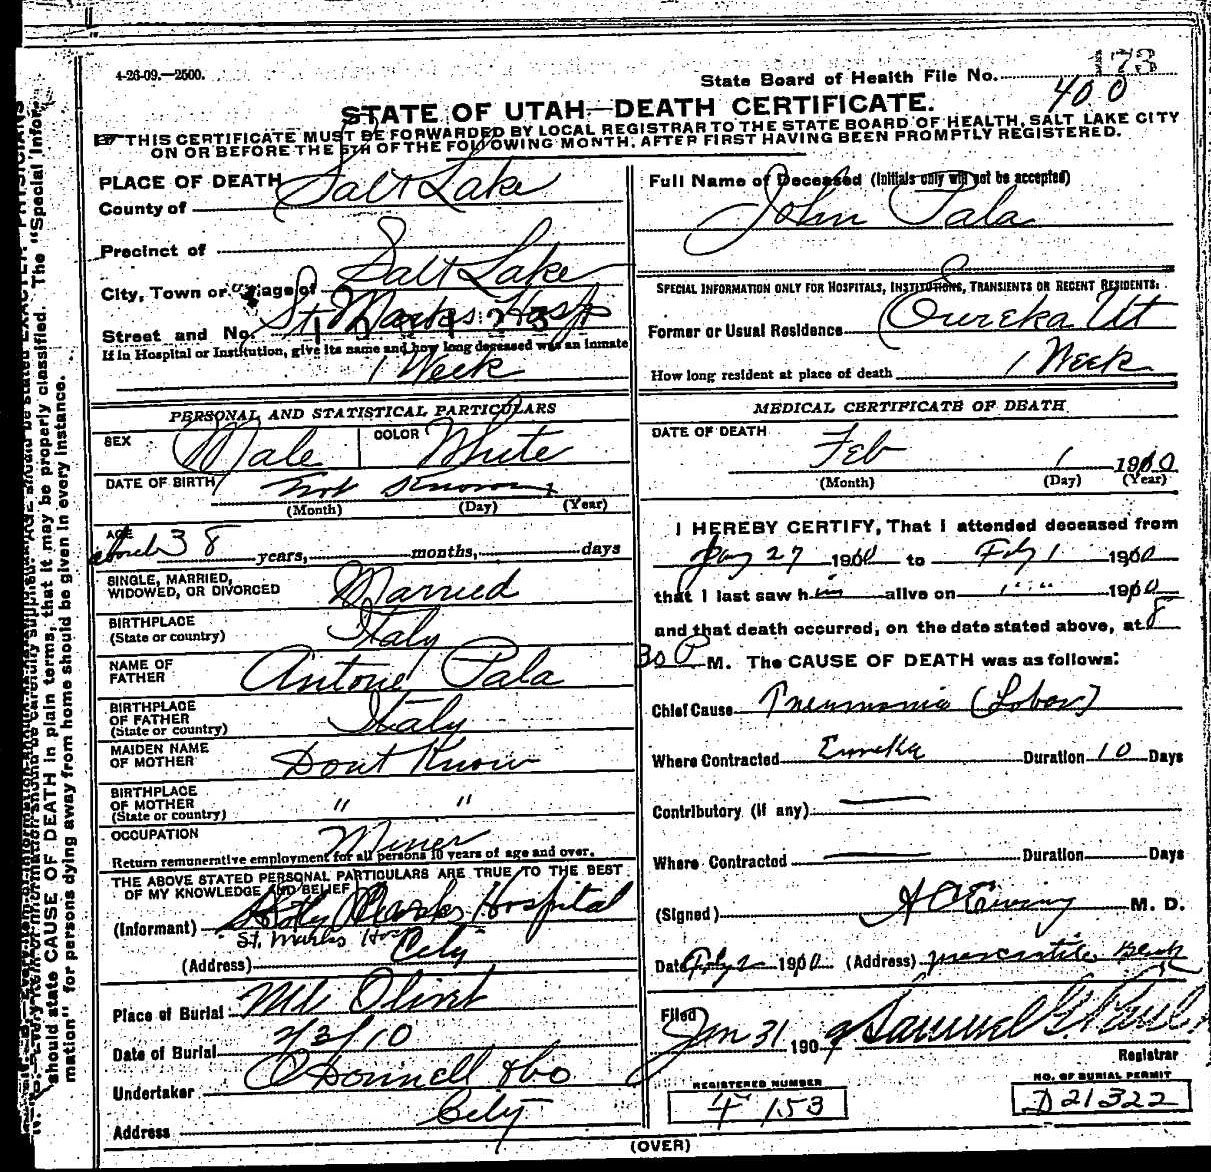 4-26-09.—2500.
State Board of Health File No. 173
400
STATE OF UTAH—DEATH CERTIFICATE.
THIS CERTIFICATE MUST BE FORWARDED BY LOCAL REGISTRAR TO THE STATE BOARD OF HEALTH, SALT LAKE CITY
ON OR BEFORE THE 5TH OF THE FOLLOWING MONTH, AFTER FIRST HAVING BEEN PROMPTLY REGISTERED.
PLACE OF DEATH
County of Salt Lake
Precinct of
City, Town or Village of Salt Lake
Street and No. St Marks Hosp
If in Hospital or Institution, give its name and how long deceased was an inmate
1 Week
Full Name of Deceased (Initials only will not be accepted)
John Pala
SPECIAL INFORMATION ONLY FOR HOSPITALS, INSTITUTIONS, TRANSIENTS OR RECENT RESIDENTS.
Former or Usual Residence Eureka Ut
How long resident at place of death 1 Week
PERSONAL AND STATISTICAL PARTICULARS
SEX Male COLOR White
DATE OF BIRTH Not Known
(Month) (Day) (Year)
AGE about 38 years, months, days
SINGLE, MARRIED,
WIDOWED, OR DIVORCED Married
BIRTHPLACE
(State or country) Italy
NAME OF
FATHER Antone Pala
BIRTHPLACE
OF FATHER
(State or country) Italy
MAIDEN NAME
OF MOTHER Dont Know
BIRTHPLACE
OF MOTHER
(State or country) " "
OCCUPATION Miner
Return remunerative employment for all persons 10 years of age and over.
THE ABOVE STATED PERSONAL PARTICULARS ARE TRUE TO THE BEST
OF MY KNOWLEDGE AND BELIEF
(Informant) Marks Hospital
St. Marks Hos
(Address) City
Place of Burial Mt Olivet
Date of Burial 2/3/10
Undertaker O'Donnell & Co
Address City
MEDICAL CERTIFICATE OF DEATH
DATE OF DEATH Feb 1 1910
(Month) (Day) (Year)
I HEREBY CERTIFY, That I attended deceased from
Jany 27 1910 to Feby 1 1910
that I last saw him alive on " " 1910
and that death occurred, on the date stated above, at 8
30 P M. The CAUSE OF DEATH was as follows:
Chief Cause Pneumonia (Lobar)
Where Contracted Eureka Duration 10 Days
Contributory (if any)
Where Contracted Duration Days
(Signed) M. D.
Date Feby 2 1910 (Address) Mercantile
Filed Jan 31 190 Samuel G. Paul
Registrar
REGISTERED NUMBER
4 153
NO. OF BURIAL PERMIT
D 21322
(OVER)
should state CAUSE OF DEATH in plain terms, that it may be properly classified. The "Special Infor-
mation" for persons dying away from home should be given in every instance.